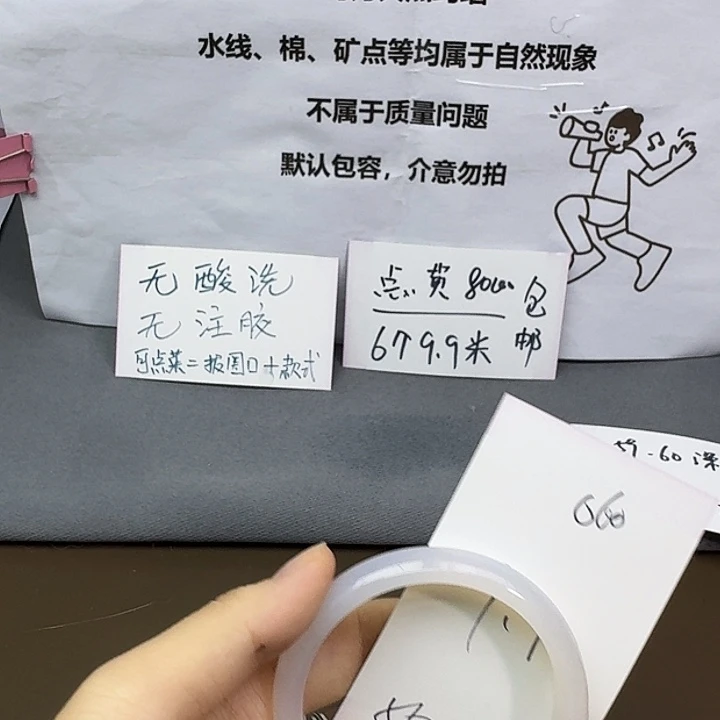 水线、棉、矿点等均属于自然现象
不属于质量问题
默认包容，介意勿拍
无酸洗
无注胶
可点菜=报圈口+款式
点贊8000
包邮
679.9米
59-60深